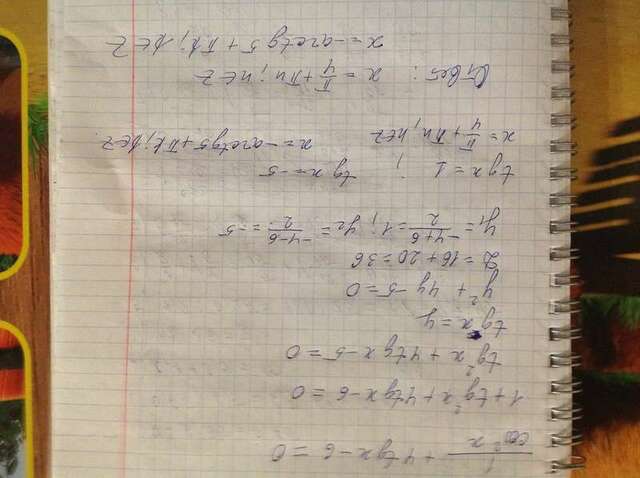 1/cos²x + 4tgx - 6 = 0
1 + tg²x + 4tgx - 6 = 0
tg²x + 4tgx - 5 = 0
tgx = y
y² + 4y - 5 = 0
D = 16 + 20 = 36
y₁ = (-4+6)/2 = 1; y₂ = (-4-6)/2 = -5
tgx = 1 ; tgx = -5
x = π/4 + πn, n∈Z x = -arctg5 + πk; k∈Z.
Ответ: x = π/4 + πn; n∈Z
x = -arctg5 + πk; k∈Z